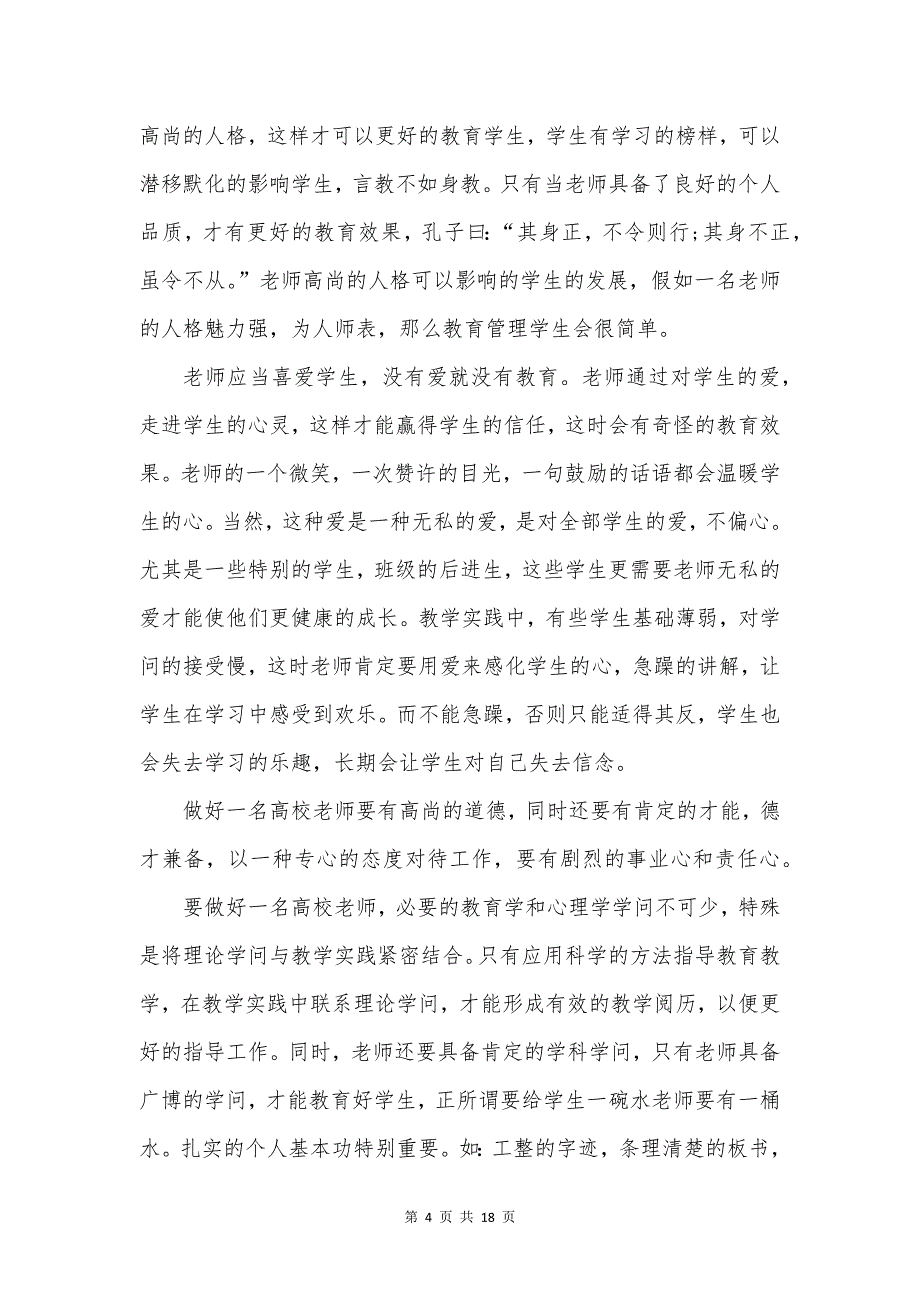 高尚的人格，这样才可以更好的教育学生，学生有学习的榜样，可以
潜移默化的影响学生，言教不如身教。只有当老师具备了良好的个人
品质，才有更好的教育效果，孔子曰：“其身正，不令则行;其身不正，
虽令不从。”老师高尚的人格可以影响的学生的发展，假如一名老师
的人格魅力强，为人师表，那么教育管理学生会很简单。
老师应当喜爱学生，没有爱就没有教育。老师通过对学生的爱，
走进学生的心灵，这样才能赢得学生的信任，这时会有奇怪的教育效
果。老师的一个微笑，一次赞许的目光，一句鼓励的话语都会温暖学
生的心。当然，这种爱是一种无私的爱，是对全部学生的爱，不偏心。
尤其是一些特别的学生，班级的后进生，这些学生更需要老师无私的
爱才能使他们更健康的成长。教学实践中，有些学生基础薄弱，对学
问的接受慢，这时老师肯定要用爱来感化学生的心，急躁的讲解，让
学生在学习中感受到欢乐。而不能急躁，否则只能适得其反，学生也
会失去学习的乐趣，长期会让学生对自己失去信念。
做好一名高校老师要有高尚的道德，同时还要有肯定的才能，德
才兼备，以一种专心的态度对待工作，要有剧烈的事业心和责任心。
要做好一名高校老师，必要的教育学和心理学学问不可少，特殊
是将理论学问与教学实践紧密结合。只有应用科学的方法指导教育教
学，在教学实践中联系理论学问，才能形成有效的教学阅历，以便更
好的指导工作。同时，老师还要具备肯定的学科学问，只有老师具备
广博的学问，才能教育好学生，正所谓要给学生一碗水老师要有一桶
水。扎实的个人基本功特别重要。如：工整的字迹，条理清楚的板书，
第 4 页 共 18 页